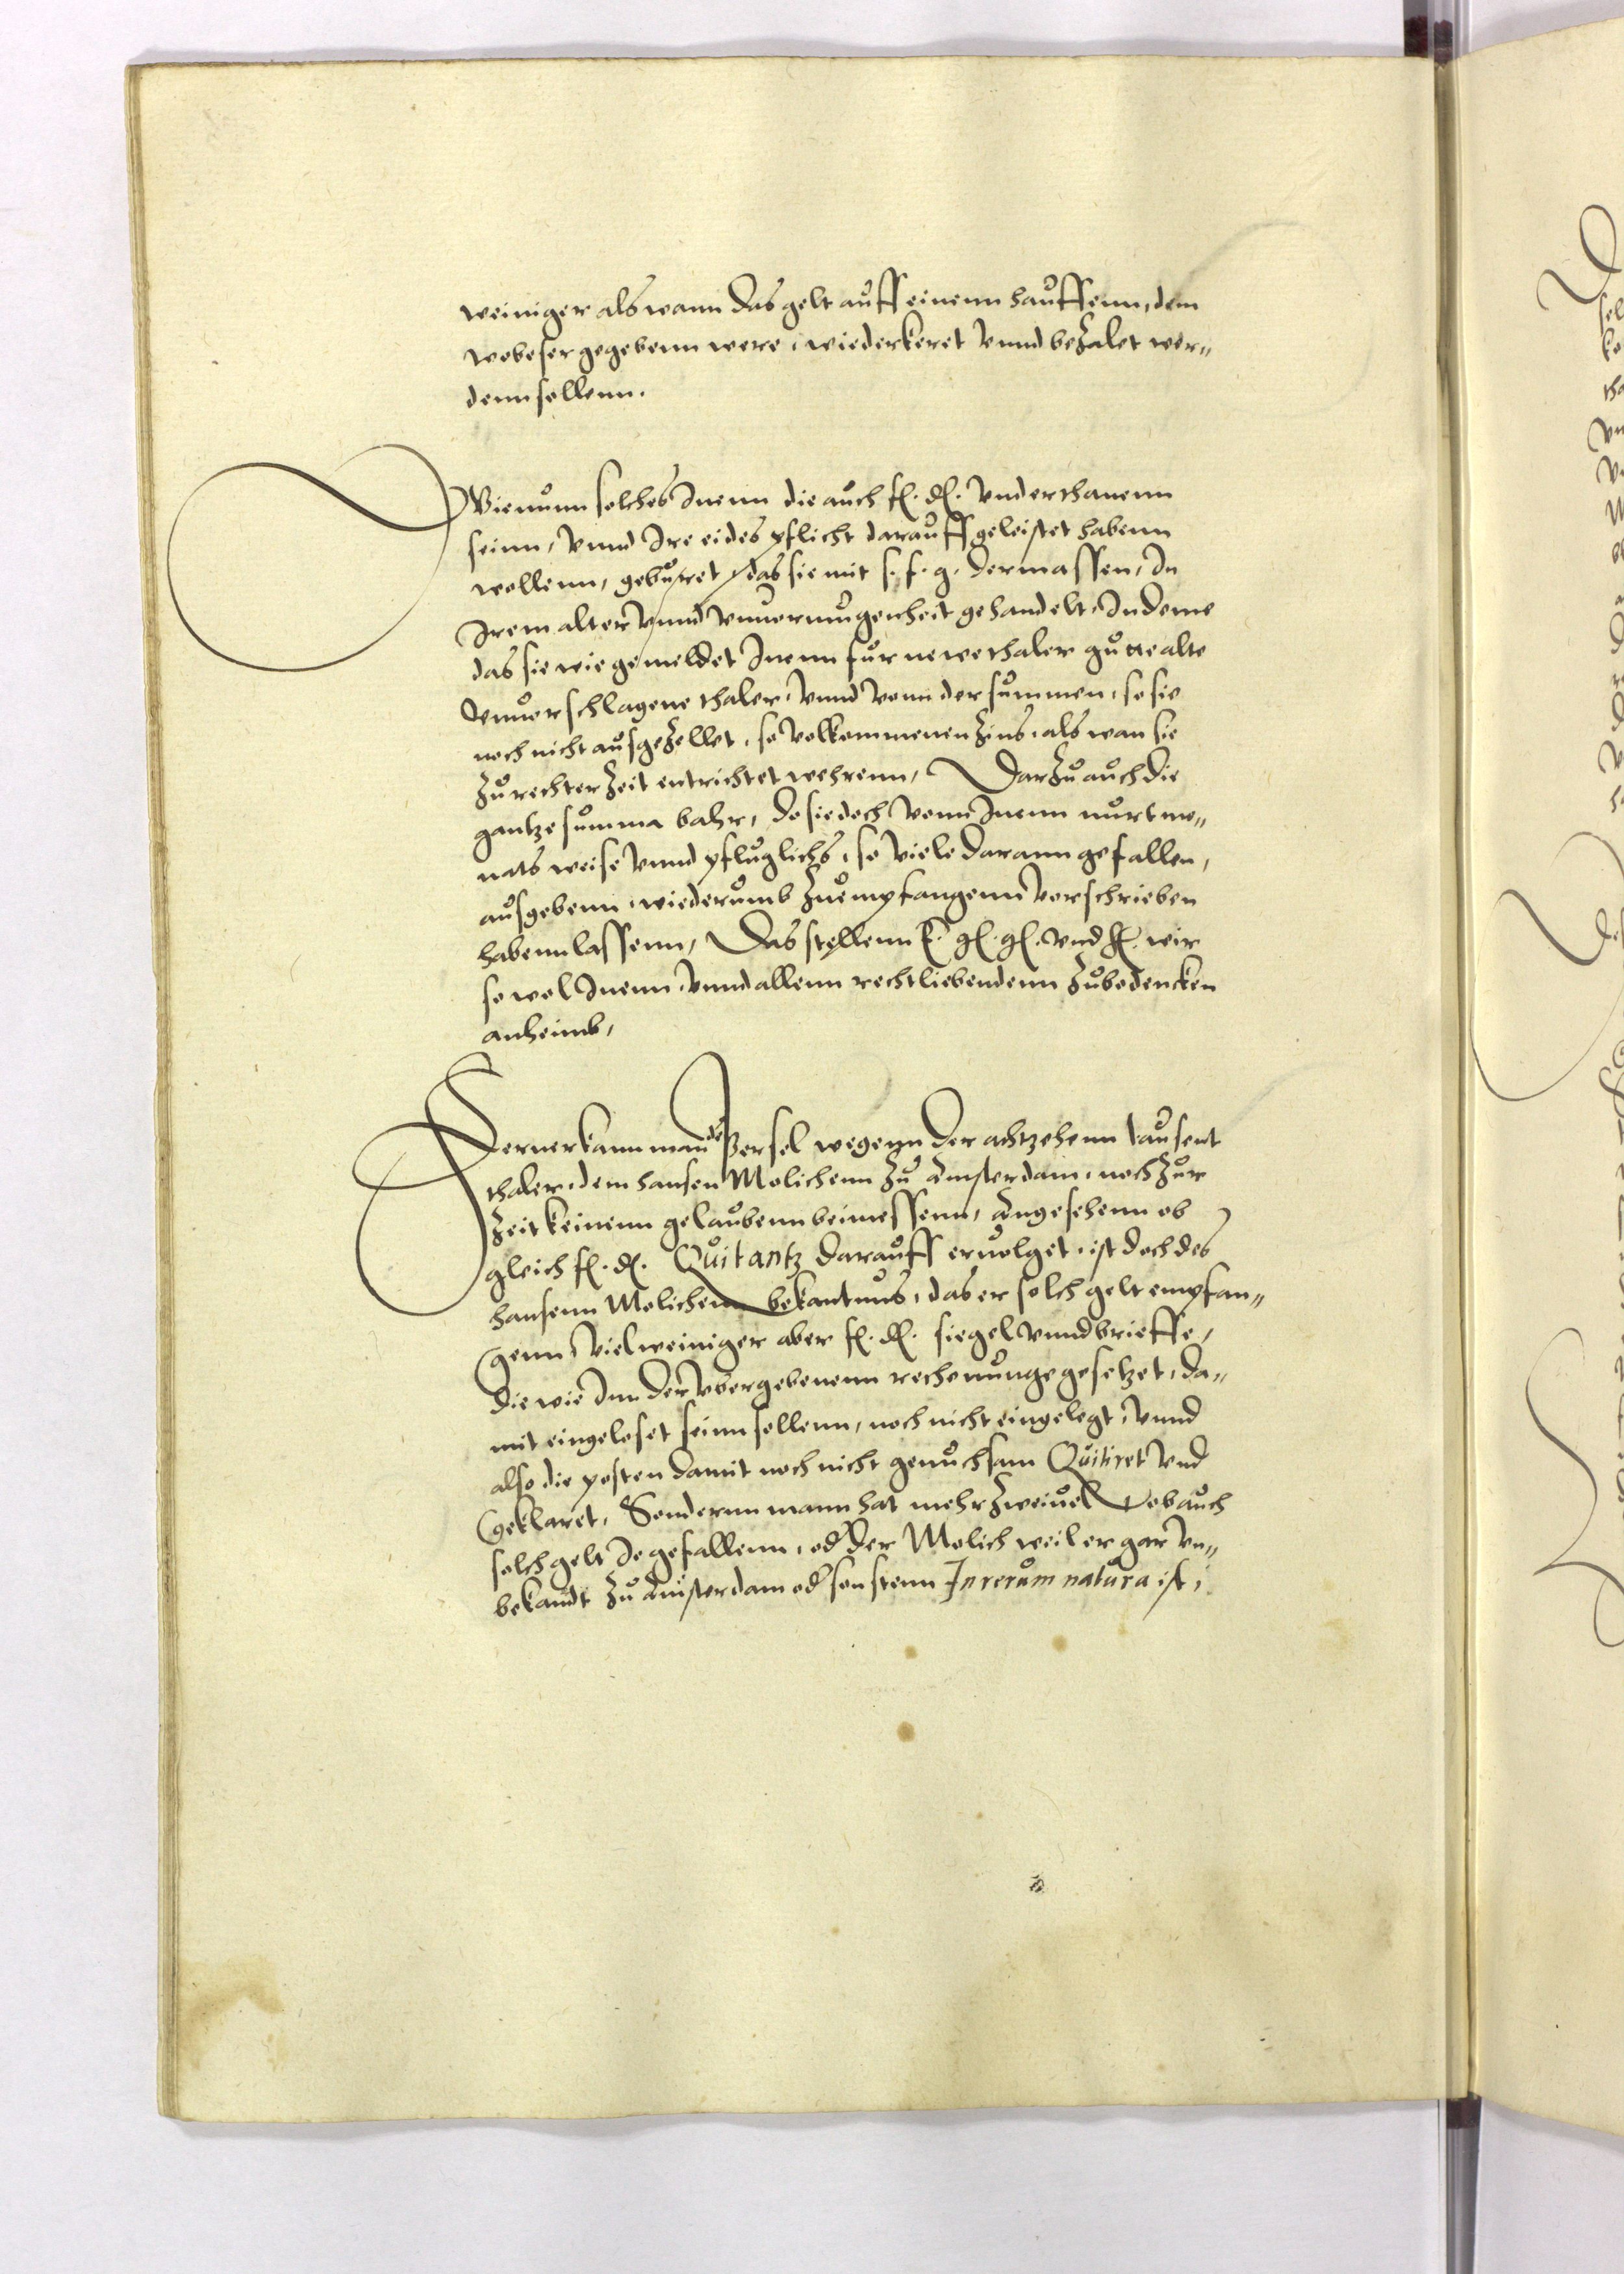 weiniger als wann das gelt auff einenn hauffenn, dem
wobeser gegebenn were, wiederkeret vnnd bezalet wer„
denn sollenn.
Wie nunn solches Inenn die auch f. d. vnderthanenn
seinn, vnnd Ire eides pflicht darauff geleistet habenn
wollenn, geburet, das sie mit s. f. g. dermassen, In
Irem alter vnnd vnuermugenheit gehandelt, In deme
das sie wie gemeldet Inenn fur newe thaler gutte alte
vnuerschlagene thaler, vnnd vonn der summen, so sie
noch nicht ausgezellet, so volkommenen Zins, als wan sie
zu rechter Zeit entrichtet wehrenn, Darzu auch die
gantze summa bahr, do sie doch vonn Inenn nurt mo„
nats weise vnnd pfluglichs, so viele darann gefallen,
ausgebenn, wiederumb zu empfangenn verschrieben
habenn lassenn, Das stellenn E. g. g. vnd f. wir
so wol Inenn, vnnd allenn rechtliebendenn zubedencken
anheimb,
Ferner kann man der Persel wegenn der achtzehenn tausent
thaler, dem hansen Molichenn zu Amsterdam, noch zur
Zeit keinenn gelaubenn beimessenn, Angesehenn ob
gleich f. d. Quitantz darauff eruolget, ist doch des
hansenn Molichenn bekantnus, das er solch gelt empfan„
genn, vielweiniger aber f. d. siegel vnnd brieffe,
die wie Inn der vbergebenenn rechenunge gesetzet, da„
mit eingeloset seinn sollenn, noch nicht eingelegt, vnnd
also die posten damit noch nicht genuchsam Quitiret vnd
geklaret, Sondernn mann hat mehr Zweiuel, ob auch
solch gelt Je gefallenn, od der Molich weil er gar vn„
bekandt zu Amsterdam od sonstenn In rerum natura ist,